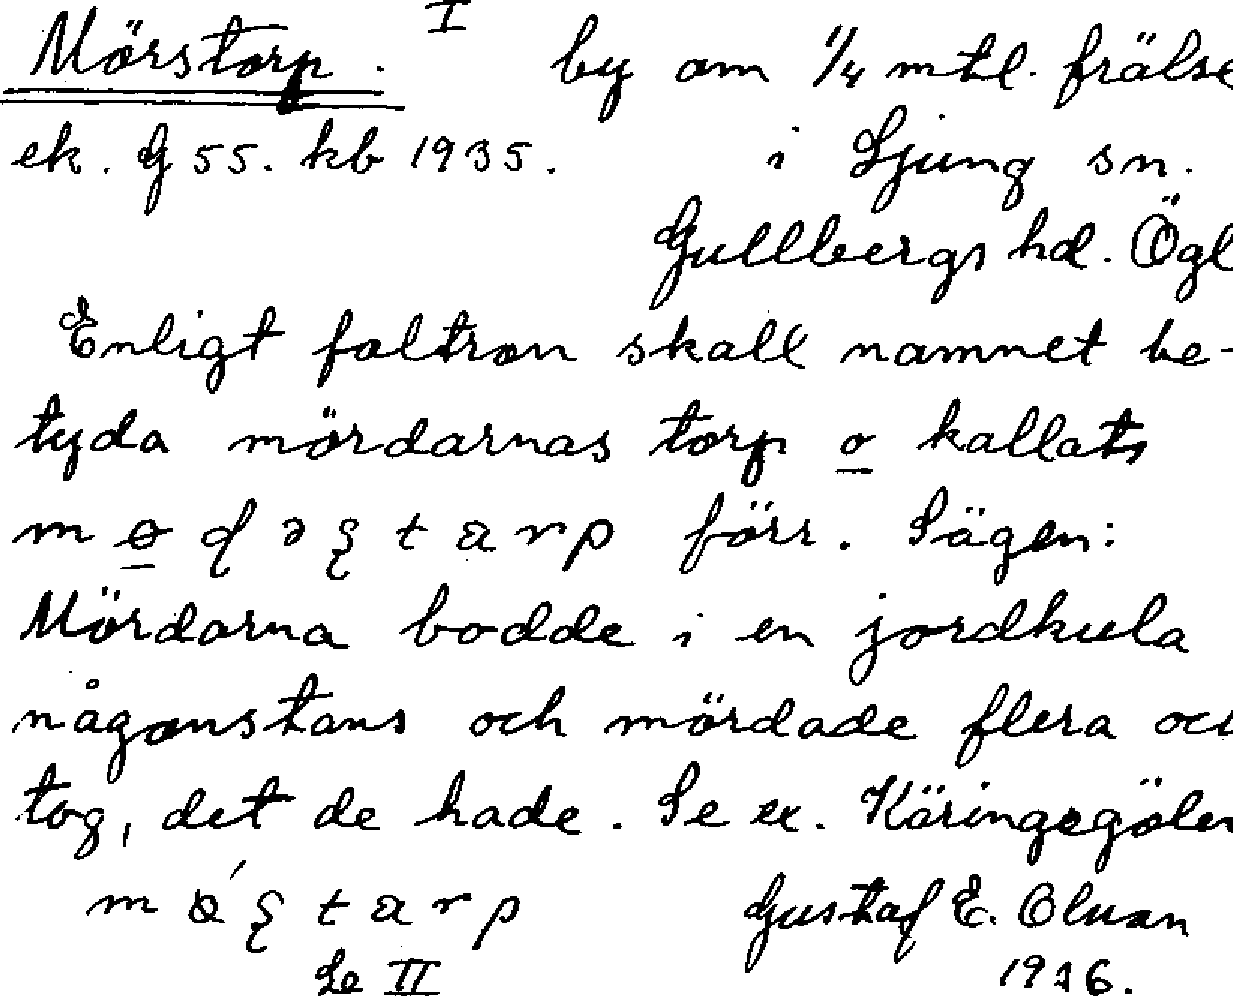 Mörstorp. I by om 1/4 mtl. frälse
ek. G 55. kb 1935. i Ljung sn.
Gullbergs hd. Ögl
Enligt foltron skall namnet be-
tyda mördarnas torp o kallats
förr. Sägen:
Mördarna bodde i en jordkula
någonstans och mördade flera oc
tog, det de hade. Se ex. Käringegölen
Gustaf E. Olsson
Se II 1936.